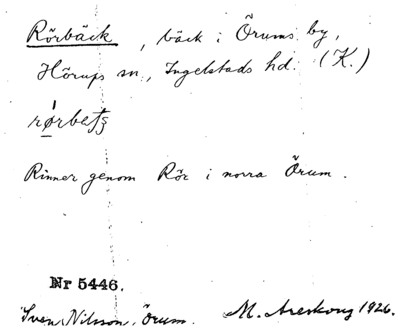 Rörbäck, bäck i Örums by,
Hörups sn., Ingelstads hd. (K.)
Rinner genom Rör i norra Örum.
Nr 5446.
Sven Nilsson, Örum. M. Areskoug 1926.